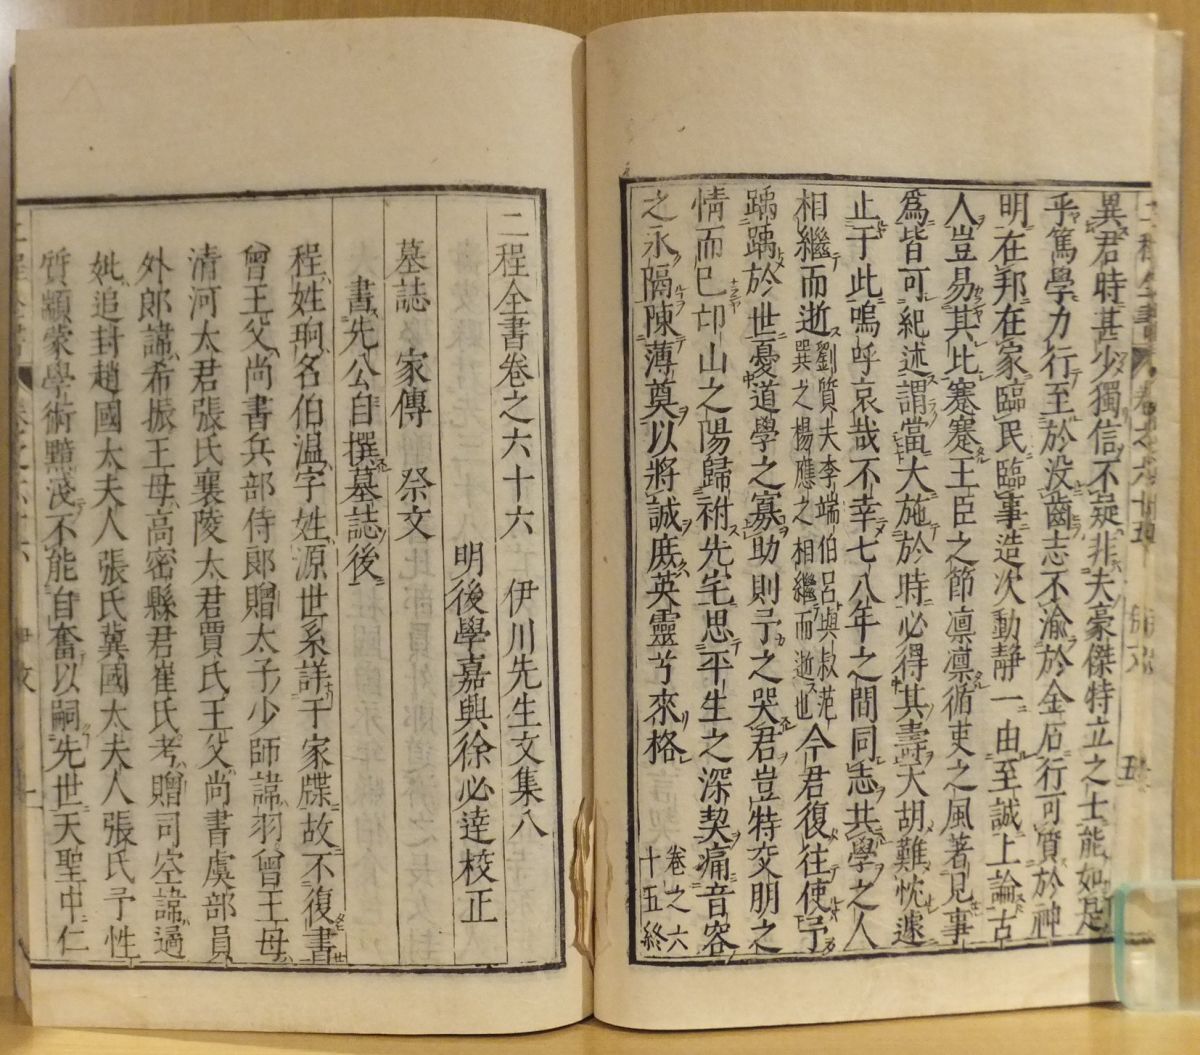 異君時甚少獨信不疑非夫豪傑特立之士能如是
乎篤學力行至於没齒志不渝於金石行可質於神
明在邦在家臨民臨事造次動靜一由至誠上論古
人豈易其比蹇蹇王臣之節凛凛循吏之風著見事
爲皆可紀述謂當大施於時必得其壽天胡難忱遽
止于此嗚呼哀哉不幸七八年之間同志共學之人
相繼而逝劉質夫李端伯呂與叔范巽之楊應之相繼而逝也今君復往使予
踽踽於世憂道學之寡助則予之哭君豈特交朋之
情而已卭山之陽歸祔先宅思平生之深契痛音容
之永隔陳薄奠以將誠庶英靈兮來格
卷之六十五終
二程全書卷之六十六 伊川先生文集八
明後學嘉興徐必達校正
墓誌 家傳 祭文
書先公自撰墓誌後
程姓珦名伯温字姓源世系詳于家牒故不復書
曾王父尚書兵部侍郎贈太子少師諱羽曾王母
清河太君張氏襄陵太君賈氏王父尚書虞部員
外郎諱希振王母高密縣君崔氏考贈司空諱遹
妣追封趙國太夫人張氏冀國太夫人張氏予性
質顓蒙學術黯淺不能自奮以嗣先世天聖中仁